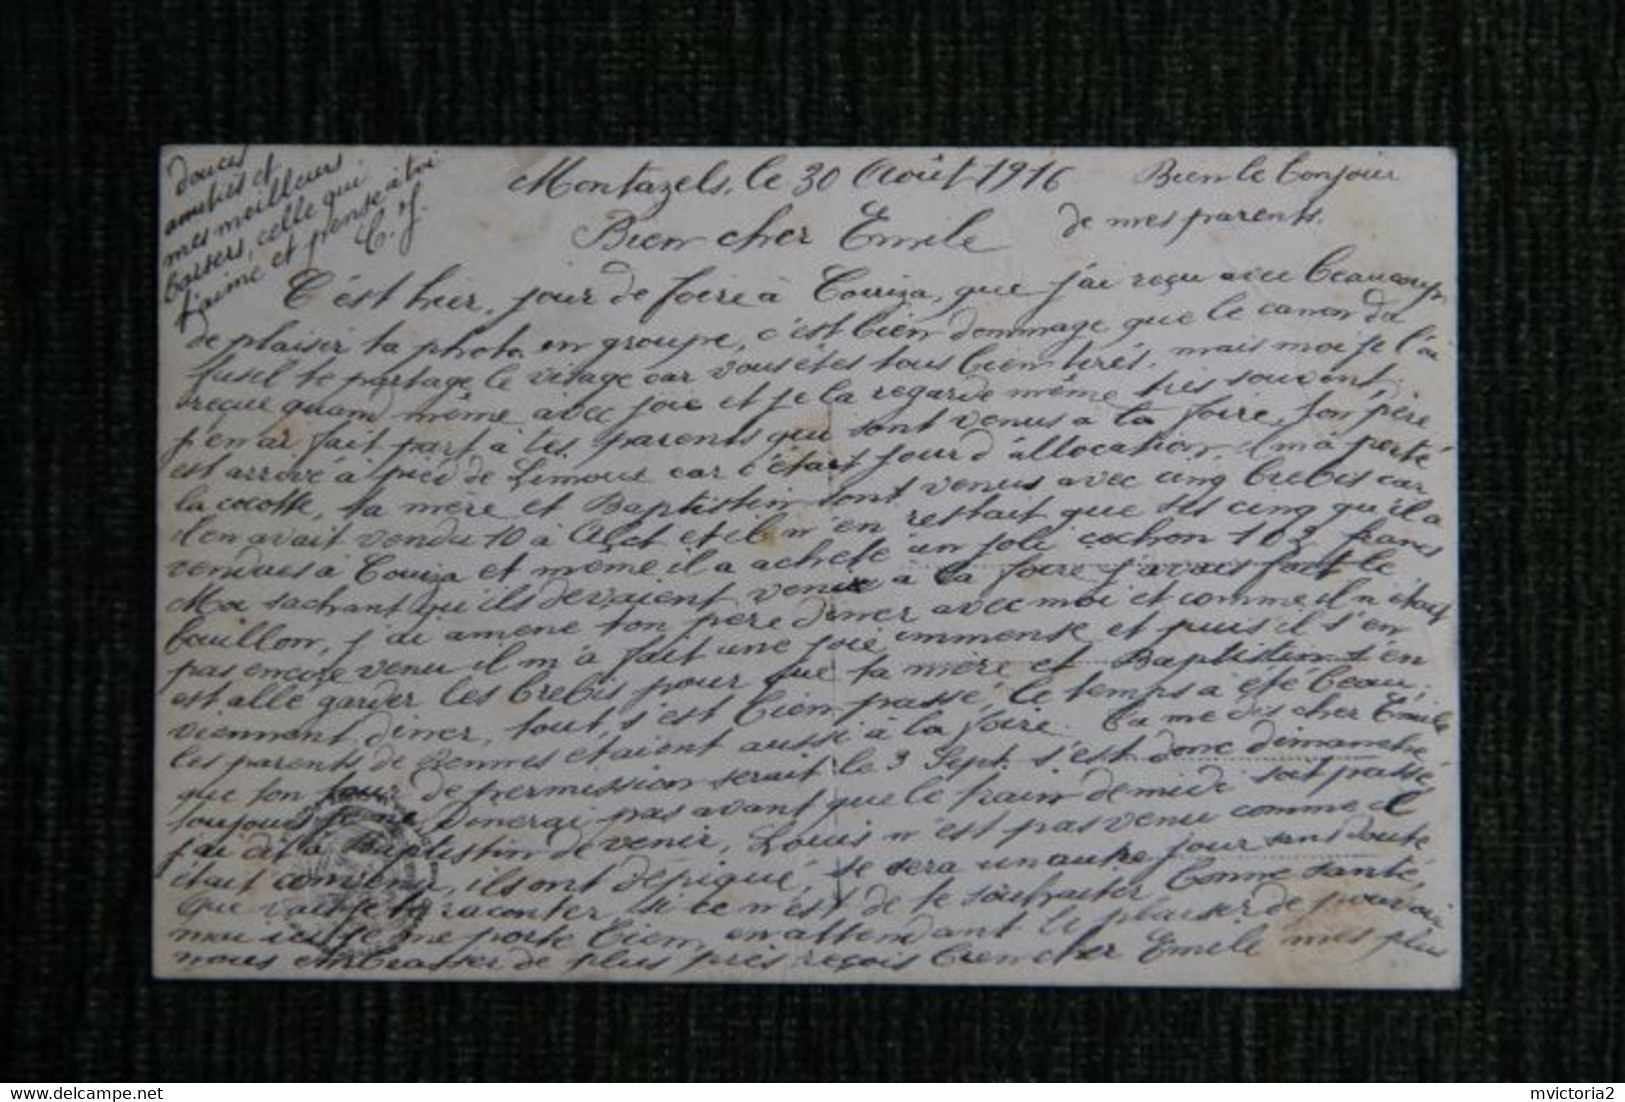 Montazels, le 30 Août 1916
Bien le bonjour
de mes parents.
Bien cher Emile
C'est hier, jour de foire à Couiza, que j'ai reçu avec beaucoup
de plaisir ta photo en groupe, c'est bien dommage que le canon du
fusil te partage le visage car vous êtes tous bien tirés. mais moi je l'ai
reçue quand même avec joie et je la regarde même très souvent,
j'en ai fait part à tes parents qui sont venus à la foire, ton père
est arrivé à pied de Limoux car c'était jour d'allocation, il m'a porté
la cocotte, ta mère et Baptistin sont venus avec cinq brebis car
il en avait vendu 10 à Alet et il n'en restait que les cinq qu'il a
vendues à Couiza et même il a acheté un joli cochon 103 francs
Moi sachant qu'ils devaient venir à la foire j'avais fait le
bouillon, j'ai amené ton père diner avec moi et comme il n'était
pas encore venu il m'a fait une joie immense et puis il s'en
est allé garder les brebis pour que ta mère et Baptistin s'en
viennent diner, tout s'est bien passé, le temps a été beau,
les parents de Rennes étaient aussi à la foire. Tu me dis cher Emile
que ton jour de permission serait le 3 Sept. s'est donc dimanche
toujours je ne dinerai pas avant que le train de midi soit passé
j'ai dit à Baptistin de venir, Louis n'est pas venu comme il
était convenu, ils ont dépiqué, se sera un autre jour sans doute
Que vais je te raconter, si ce n'est de te souhaiter bonne santé,
moi ici je me porte bien, en attendant le plaisir de pouvoir
nous embrasser de plus près reçois bien cher Emile mes plus
douces
amitiés et
mes meilleurs
baisers, celle qui
t'aime et pense à toi
C. J.
mvictoria2